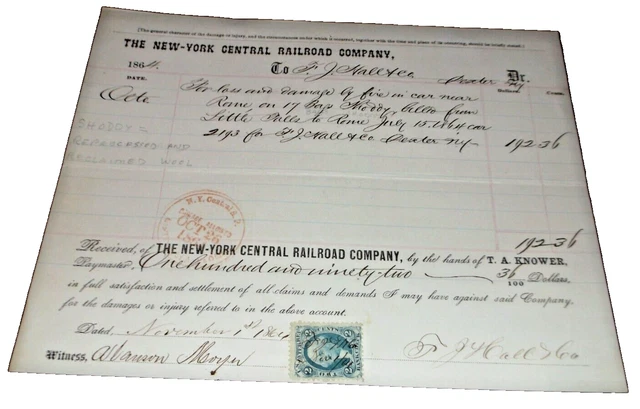 [The general character of the damage or injury, and the circumstances under which it occurred, together with the time and place of its occurring, should be briefly stated.]
THE NEW-YORK CENTRAL RAILROAD COMPANY,
1864. To F. J. Hall & Co Dexter NY Dr.
DATE. Dollars. Cents.
Octo For loss and damage by fire in car near
Rome on 17 Bags Shoddy, billed from
Little Falls to Rome July 15. 1864 car
2193 for F J. Hall & Co Dexter NY 192 36
SHODDY =
REPROCESSED AND
RECLAIMED WOOL
N. Y. Central R.
OCT 26
192 36
Received, of THE NEW-YORK CENTRAL RAILROAD COMPANY, by the hands of T. A. KNOWER,
Paymaster, One hundred and ninety-two 36/100 Dollars,
in full satisfaction and settlement of all claims and demands I may have against said Company,
for the damages or injury referred to in the above account.
Dated, November 1st 1864
Witness, F J Hall & Co